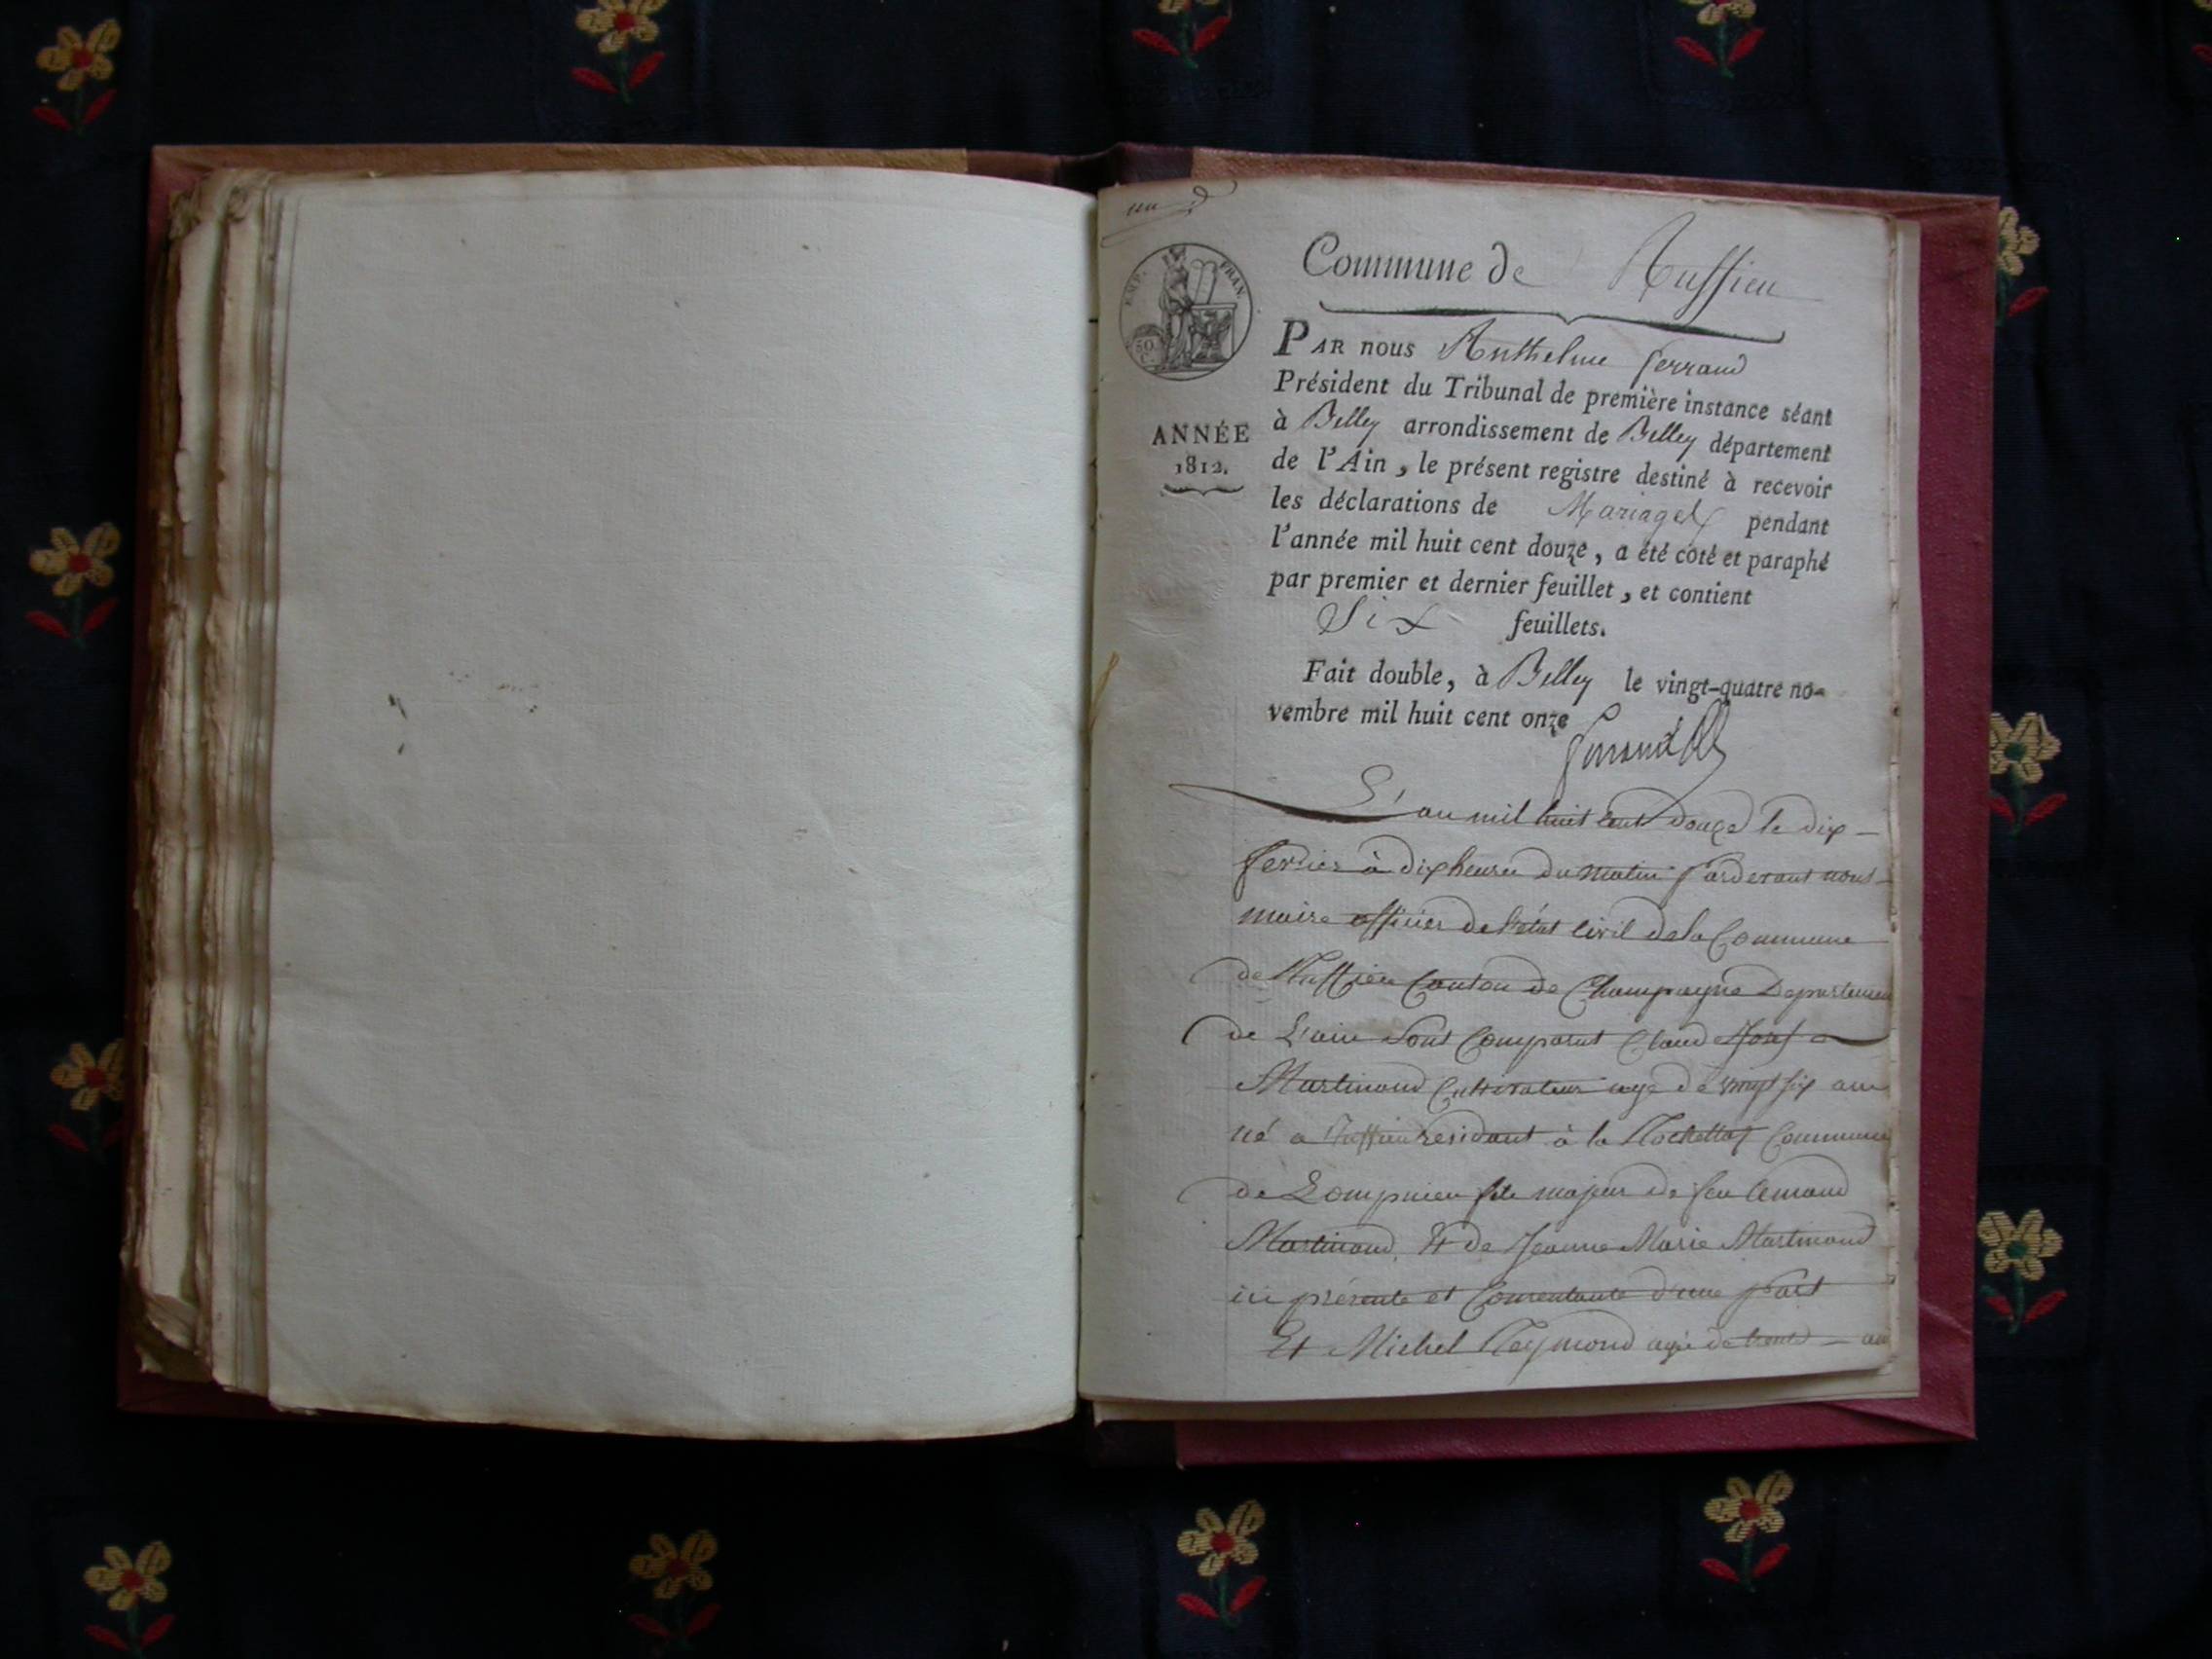 un
EMP. FRAN.
50 C.
Commune de Ruffieu
PAR nous Anthelme ferrand
Président du Tribunal de première instance séant
à Belley arrondissement de Belley département
de l'Ain, le présent registre destiné à recevoir
les déclarations de Mariages pendant
l'année mil huit cent douze, a été coté et paraphé
par premier et dernier feuillet, et contient
Six feuillets.
Fait double, à Belley le vingt-quatre no-
vembre mil huit cent onze
ANNÉE
1812.
L'an mil huit cent douze le dix
fevrier à dix heures du matin pardevant nous
maire officier de l'état civil de la Commune
de Ruffieu Canton de Champagne Departemen
de L'ain sont Comparut Claud Josef
Martinand Cultivateur agé de vingt six ans
né a Ruffieu residant à la Rochettaz Commune
de Lompnieu fils majeur de feu
Martinand Et de Jeanne Marie Martinand
ici présente et Consentante d'une part
Et Michel Reymond agé de